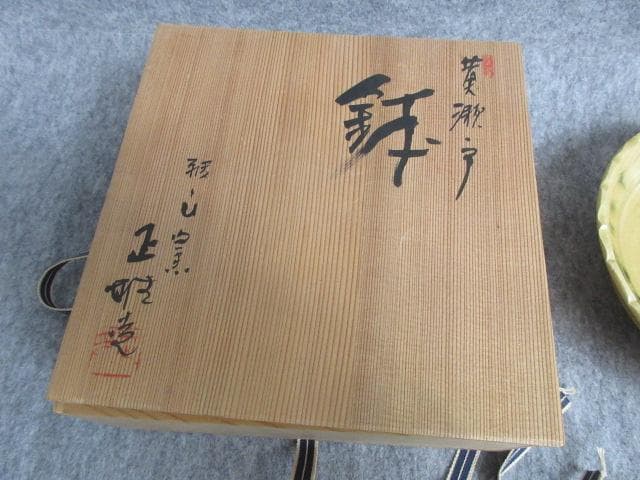 黄瀬戸
鉢
山窯
正雄造